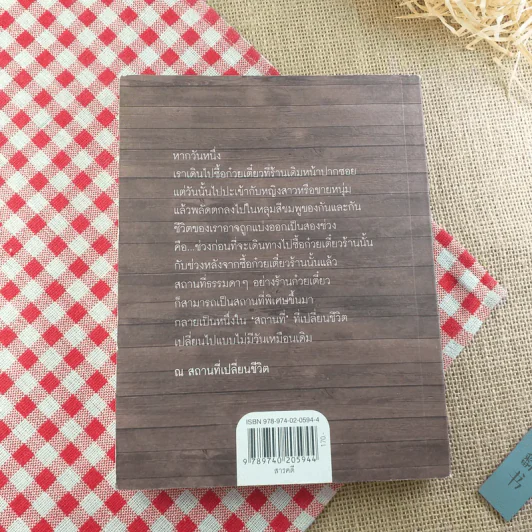 หากวันหนึ่ง
เราเดินไปซื้อก๋วยเตี๋ยวที่ร้านเดิมหน้าปากซอย
แต่วันนั้นไปปะเข้ากับหญิงสาวหรือชายหนุ่ม
แล้วพลัดตกลงไปในหลุมสีชมพูของกันและกัน
ชีวิตของเราอาจถูกแบ่งออกเป็นสองช่วง
คือ...ช่วงก่อนที่จะเดินทางไปซื้อก๋วยเตี๋ยวร้านนั้น
กับช่วงหลังจากซื้อก๋วยเตี๋ยวร้านนั้นแล้ว
สถานที่ธรรมดาๆ อย่างร้านก๋วยเตี๋ยว
ก็สามารถเป็นสถานที่พิเศษขึ้นมา
กลายเป็นหนึ่งใน 'สถานที่' ที่เปลี่ยนชีวิต
เปลี่ยนไปแบบไม่มีวันเหมือนเดิม
ณ สถานที่เปลี่ยนชีวิต
ISBN 978-974-02-0594-4
170.-
9 789740 205944
สารคดี